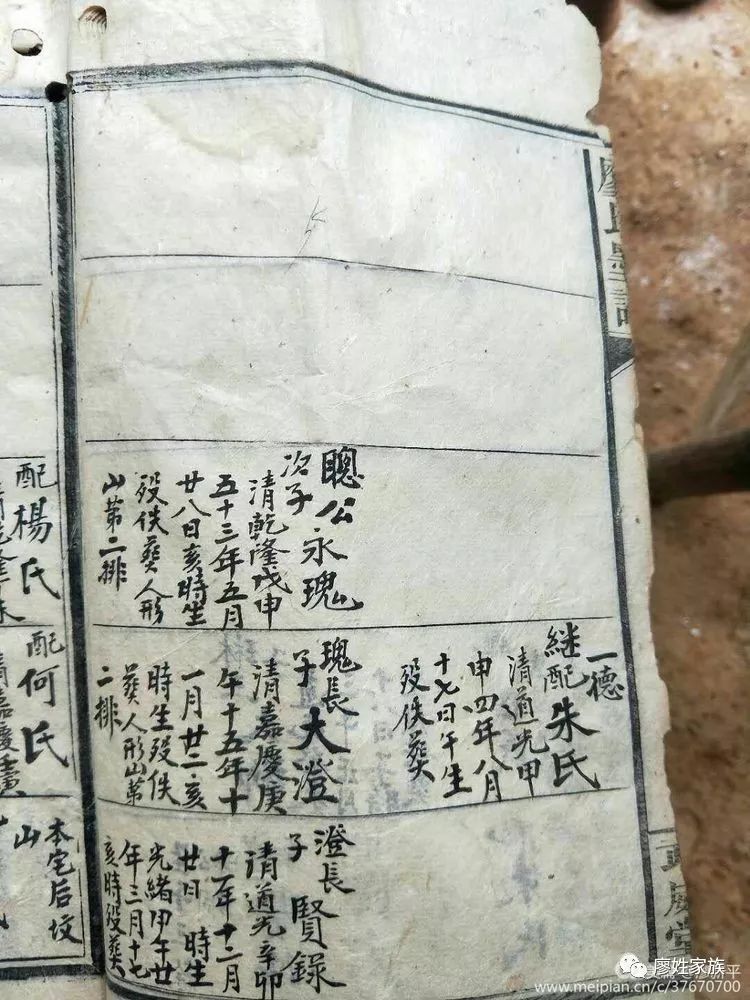 廖氏墨譜
一德
継配朱氏
清道光甲
申四年八月
十七日午生
殁佚葬
聰公永瑰
次子
清乾隆戊申
五十三年五月
廿八日亥時生
殁佚葬人形
山第二排
瑰長大澄
子
清嘉慶庚
午十五年十
一月廿二亥
時生殁佚
葬人形山第
二排
澄長賢錄
子
清道光辛卯
十一年十二月
廿日 時生
光緒甲午廿
年三月十七
亥時殁葬
配楊氏
配何氏
清嘉慶
本宅后坟
山
廖姓家族
www.meipian.cn/c/37670700